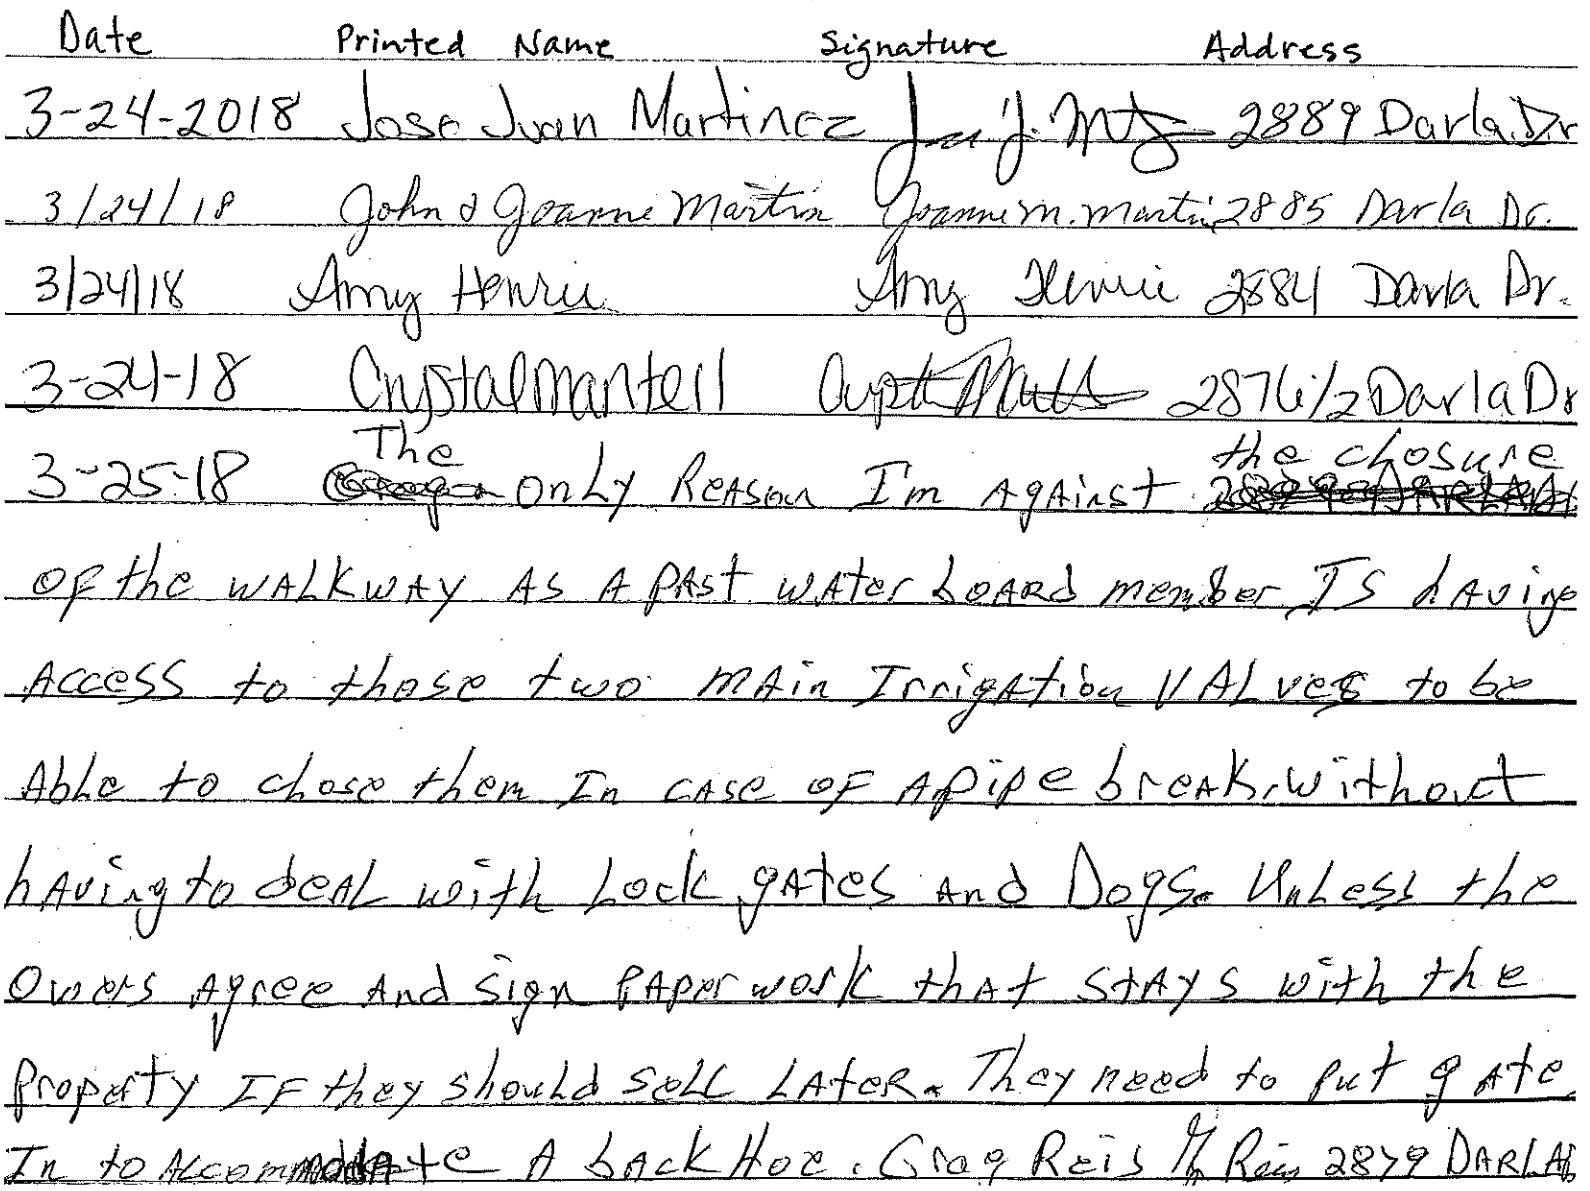 Date Printed Name Signature Address
3-24-2018 Jose Juan Martinez 2889 Darla Dr
3/24/18 John & Joanne Martin Joanne M. Martin 2885 Darla Dr.
3/24/18 Amy Henrie Amy Henrie 2884 Darla Dr.
3-24-18 Crystal Mantell 2876 1/2 Darla Dr
The the closure
3-25-18 only Reason I'm Against
of the WALKWAY AS A PAST WAter boARd member IS hAving
Access to those two MAin IrrigAtion VALves to be
Able to close them In cAse of A pipe breAk, without
hAving to deAL with Lock gAtes And Dogs. UnLess the
Owers Agree And Sign PAper work thAt StAys with the
Property IF they should SeLL LAteR. They need to put gAte
In to Accommodate A bAck Hoe. Greg Reis 2879 DARLA